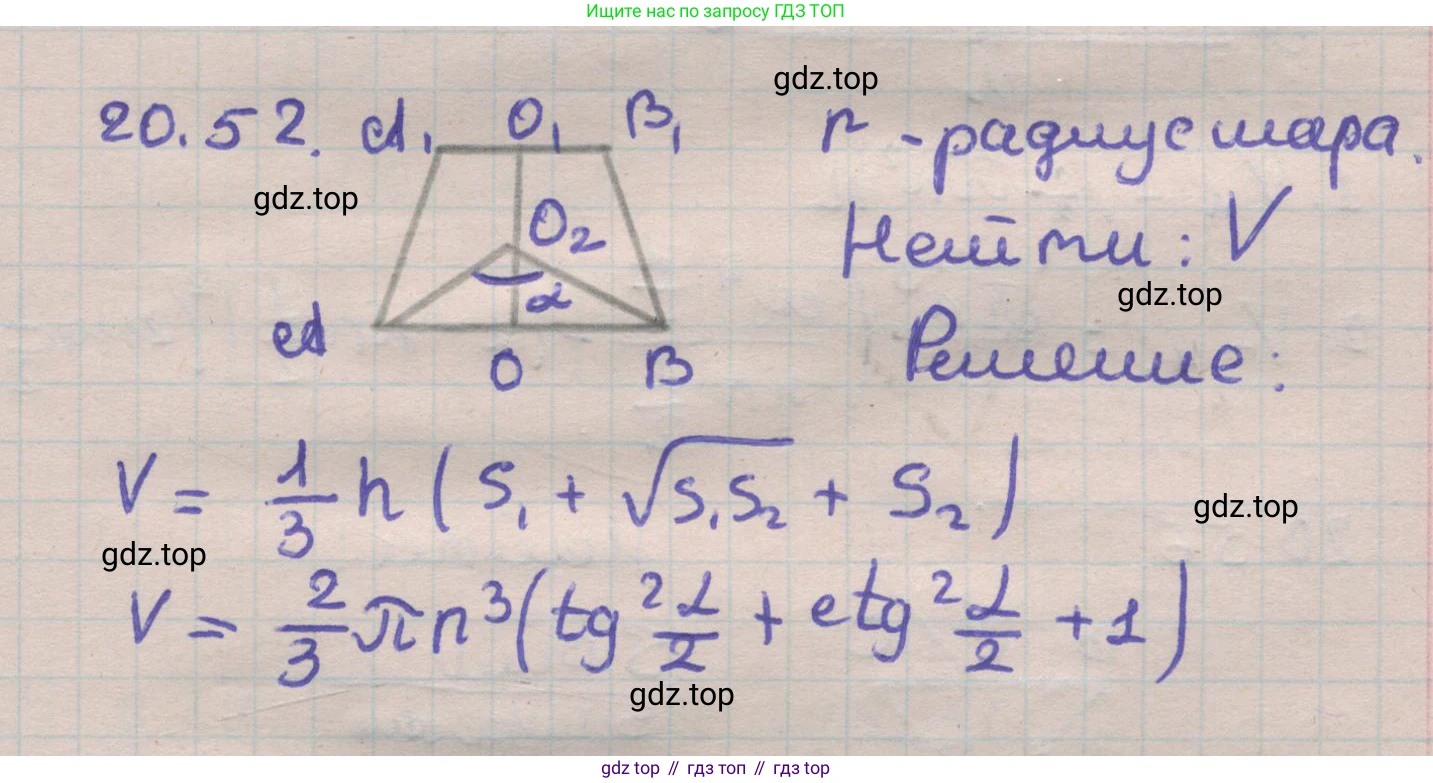 Ищите нас по запросу ГДЗ ТОП
gdz.top
20.52. A₁ O₁ B₁ r - радиус шара.
gdz.top
O₂ Найти: V
α gdz.top
A O B Решение:
V = 1/3 h (S₁ + √S₁S₂ + S₂)
gdz.top
gdz.top
V = 2/3 πr³(tg² α/2 + ctg² α/2 + 1)
gdz.top
gdz top // гдз топ // гдз top